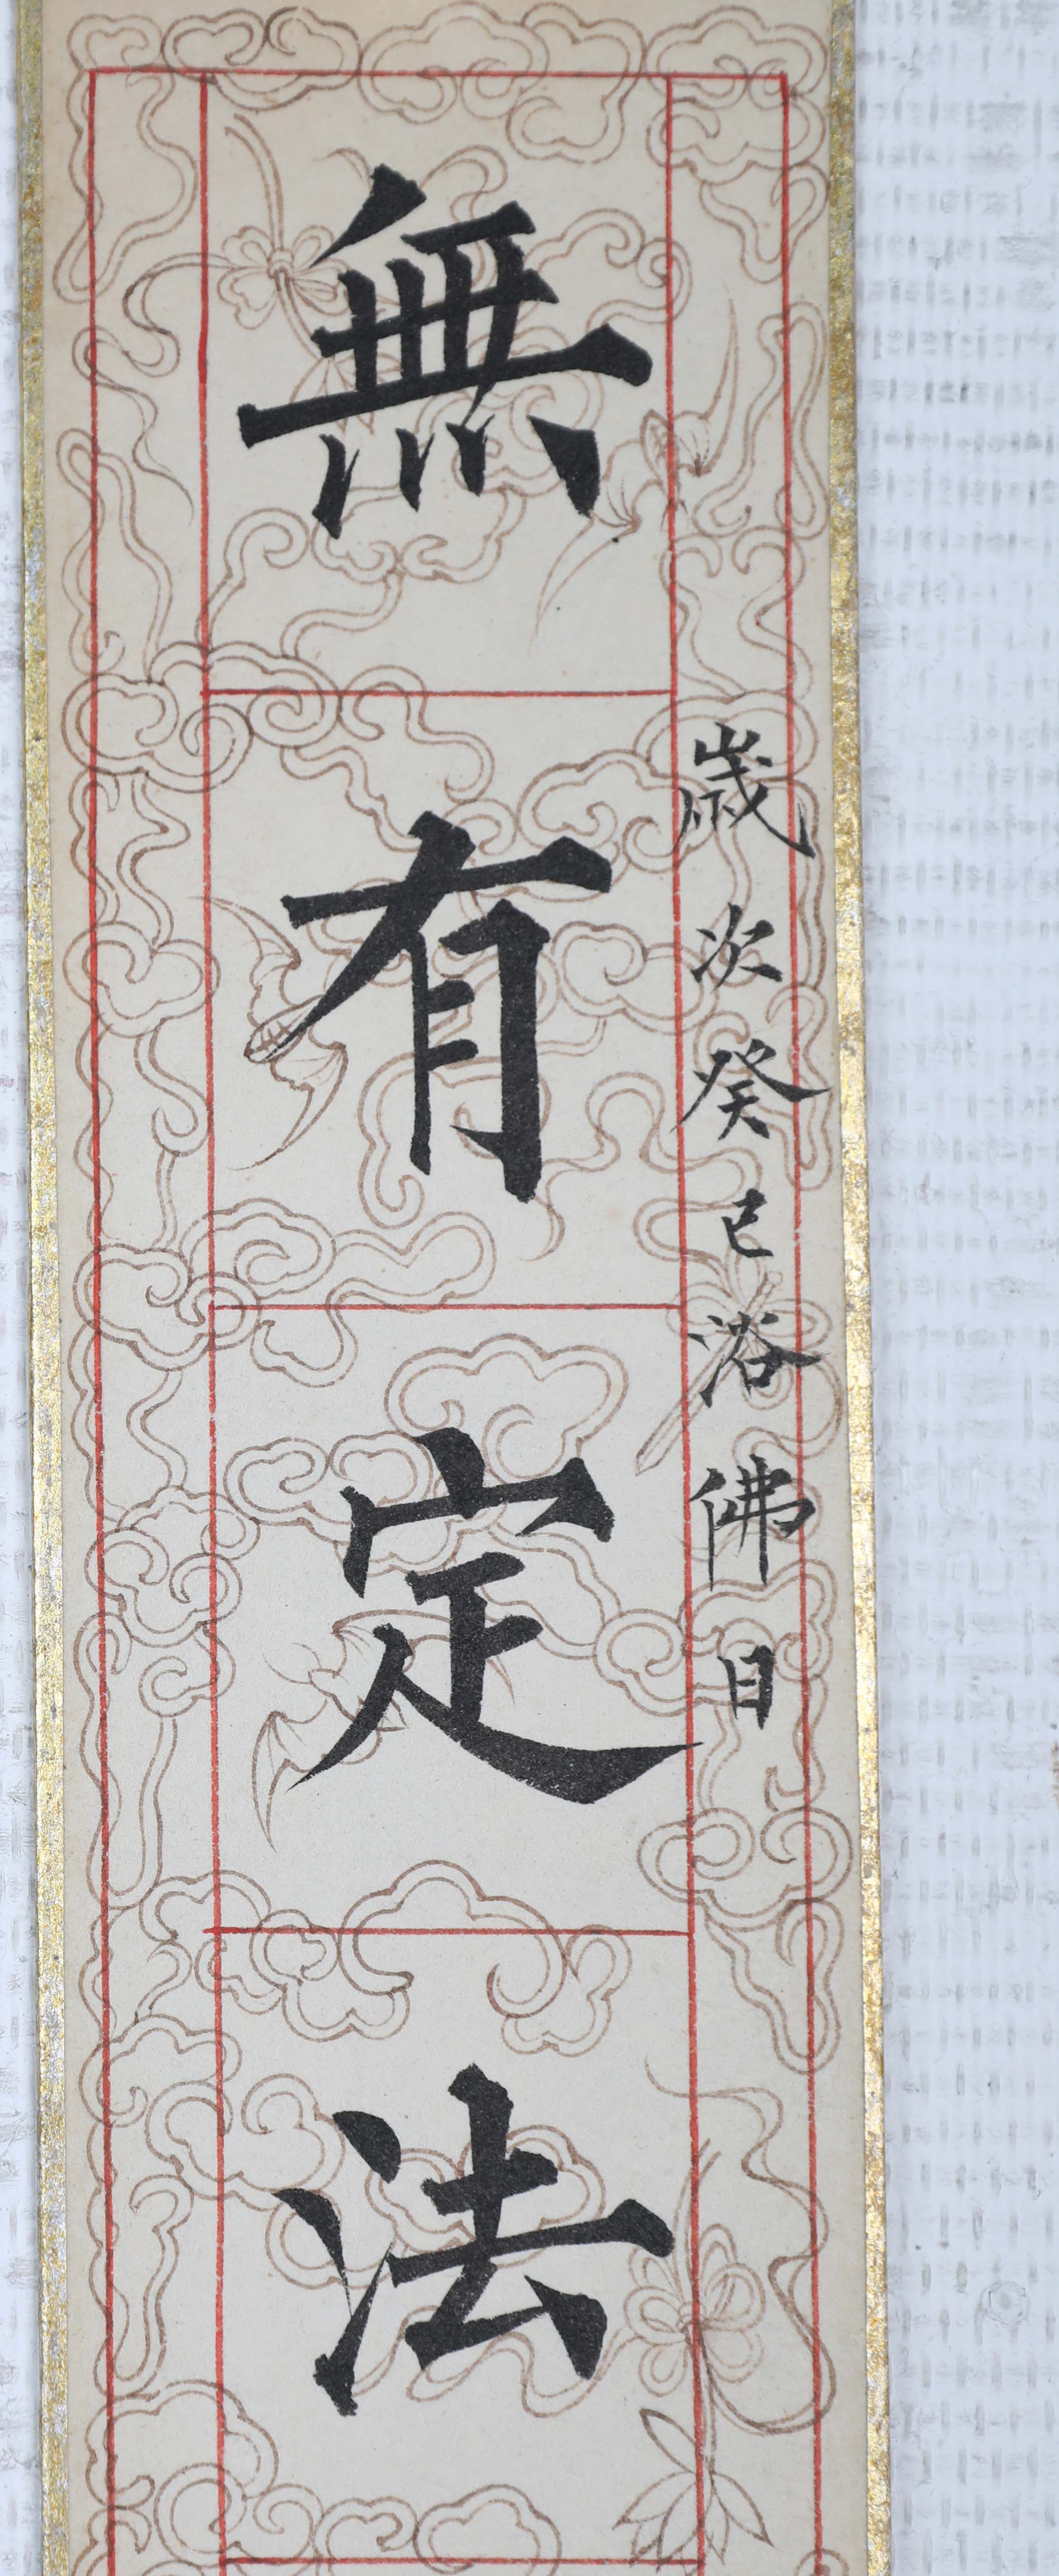 歲次癸巳浴佛日
無有定法